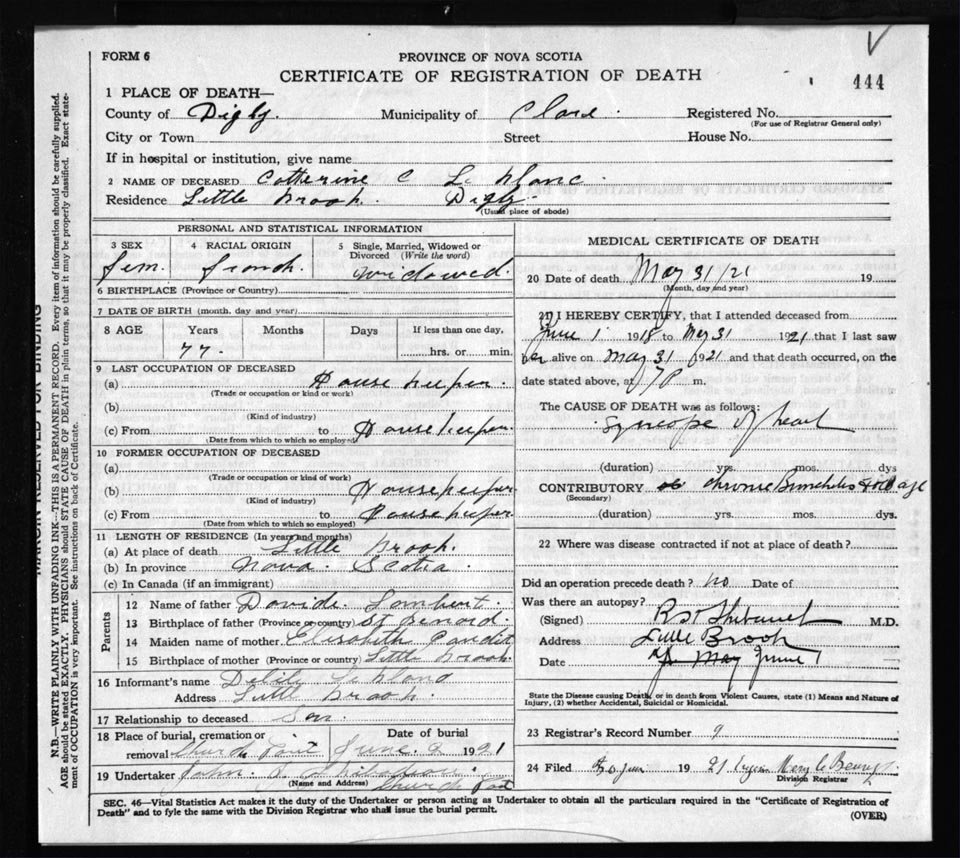 FORM 6
PROVINCE OF NOVA SCOTIA
CERTIFICATE OF REGISTRATION OF DEATH
444
1 PLACE OF DEATH—
County of Digby. Municipality of Clare. Registered No.
(For use of Registrar General only)
City or Town Street House No.
If in hospital or institution, give name
2 NAME OF DECEASED Catherine C Le blanc.
Residence Little Brook. Digby
(Usual place of abode)
PERSONAL AND STATISTICAL INFORMATION
3 SEX 4 RACIAL ORIGIN 5 Single, Married, Widowed or Divorced (Write the word)
fem. french. widowed.
6 BIRTHPLACE (Province or Country)
7 DATE OF BIRTH (month, day and year)
8 AGE Years Months Days If less than one day,
77. hrs. or min.
9 LAST OCCUPATION OF DECEASED
(a) House keeper.
(Trade or occupation or kind or work)
(b)
(Kind of industry)
(c) From to House keeper
(Date from which to which so employed)
10 FORMER OCCUPATION OF DECEASED
(a)
(Trade or occupation or kind of work)
(b) House keeper
(Kind of industry)
(c) From to House keeper
(Date from which to which so employed)
11 LENGTH OF RESIDENCE (In years and months)
(a) At place of death Little Brook.
(b) In province Nova. Scotia.
(c) In Canada (if an immigrant)
Parents
12 Name of father Davide. Lombert.
13 Birthplace of father (Province or country) St Benard.
14 Maiden name of mother Elizabeth
15 Birthplace of mother (Province or country) Little Brook.
16 Informant's name Le blanc
Address Little Brook.
17 Relationship to deceased Son.
18 Place of burial, cremation or removal Date of burial
Church Point June. 2 1921
19 Undertaker John.
(Name and Address) Church Point
MEDICAL CERTIFICATE OF DEATH
20 Date of death May 31/21 19
(Month, day and year)
21 I HEREBY CERTIFY, that I attended deceased from
June 1 1918 to May 31 1921 that I last saw
her alive on May 31 1921 and that death occurred, on the
date stated above, at 7 P m.
The CAUSE OF DEATH was as follows:
Syncope of heart
(duration) yrs. mos. dys
CONTRIBUTORY Chronic Bronchitis & old age
(Secondary)
(duration) yrs. mos. dys.
22 Where was disease contracted if not at place of death?
Did an operation precede death? No Date of
Was there an autopsy?
(Signed) M.D.
Address Little Brook
Date May June 1
State the Disease causing Death, or in death from Violent Causes, state (1) Means and Nature of
Injury, (2) whether Accidental, Suicidal or Homicidal.
23 Registrar's Record Number 9
24 Filed 1921
Division Registrar
SEC. 46—Vital Statistics Act makes it the duty of the Undertaker or person acting as Undertaker to obtain all the particulars required in the "Certificate of Registration of
Death" and to fyle the same with the Division Registrar who shall issue the burial permit.
(OVER)
MARGIN RESERVED FOR BINDING
N.B.—WRITE PLAINLY WITH UNFADING INK—THIS IS A PERMANENT RECORD. Every item of information should be carefully supplied.
AGE should be stated EXACTLY. PHYSICIANS should STATE CAUSE OF DEATH in plain terms, so that it may be properly classified. Exact statement of OCCUPATION is very important. See instructions on back of Certificate.